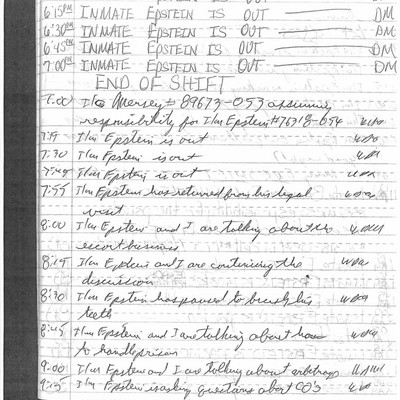 6:15PM INMATE EPSTEIN IS OUT DM
6:30PM INMATE EPSTEIN IS OUT DM
6:45PM INMATE EPSTEIN IS OUT DM
7:00PM INMATE EPSTEIN IS OUT DM
END OF SHIFT
7:00 I/m Mersey # 89673-053 assuming
responsibility for I/m Epstein # 76318-054 WM
7:15 I/m Epstein is out WM
7:30 I/m Epstein is out WM
7:45 I/m Epstein is out WM
7:55 I/m Epstein has returned from his legal WM
visit
8:00 I/m Epstein and I are talking about the WM
escort business
8:15 I/m Epstein and I are continuing the WM
discussion
8:30 I/m Epstein has paused to brush his WM
teeth
8:45 I/m Epstein and I are talking about how WM
to handle prison
9:00 I/m Epstein and I are talking about arbitrage WM
9:15 I/m Epstein is asking questions about CO's WM